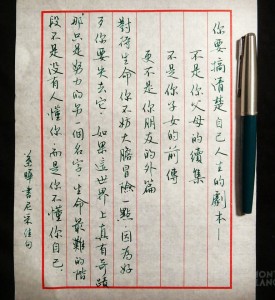 你要搞清楚自己人生的劇本—
不是你父母的續集
不是你子女的前傳
更不是你朋友的外篇
對待生命你不妨大膽冒險一點因為好
歹你要失去它。如果這世界上真有奇蹟
那只是努力的另一個名字。生命最難的階
段不是沒有人懂你,而是你不懂你自己
書尼采佳句